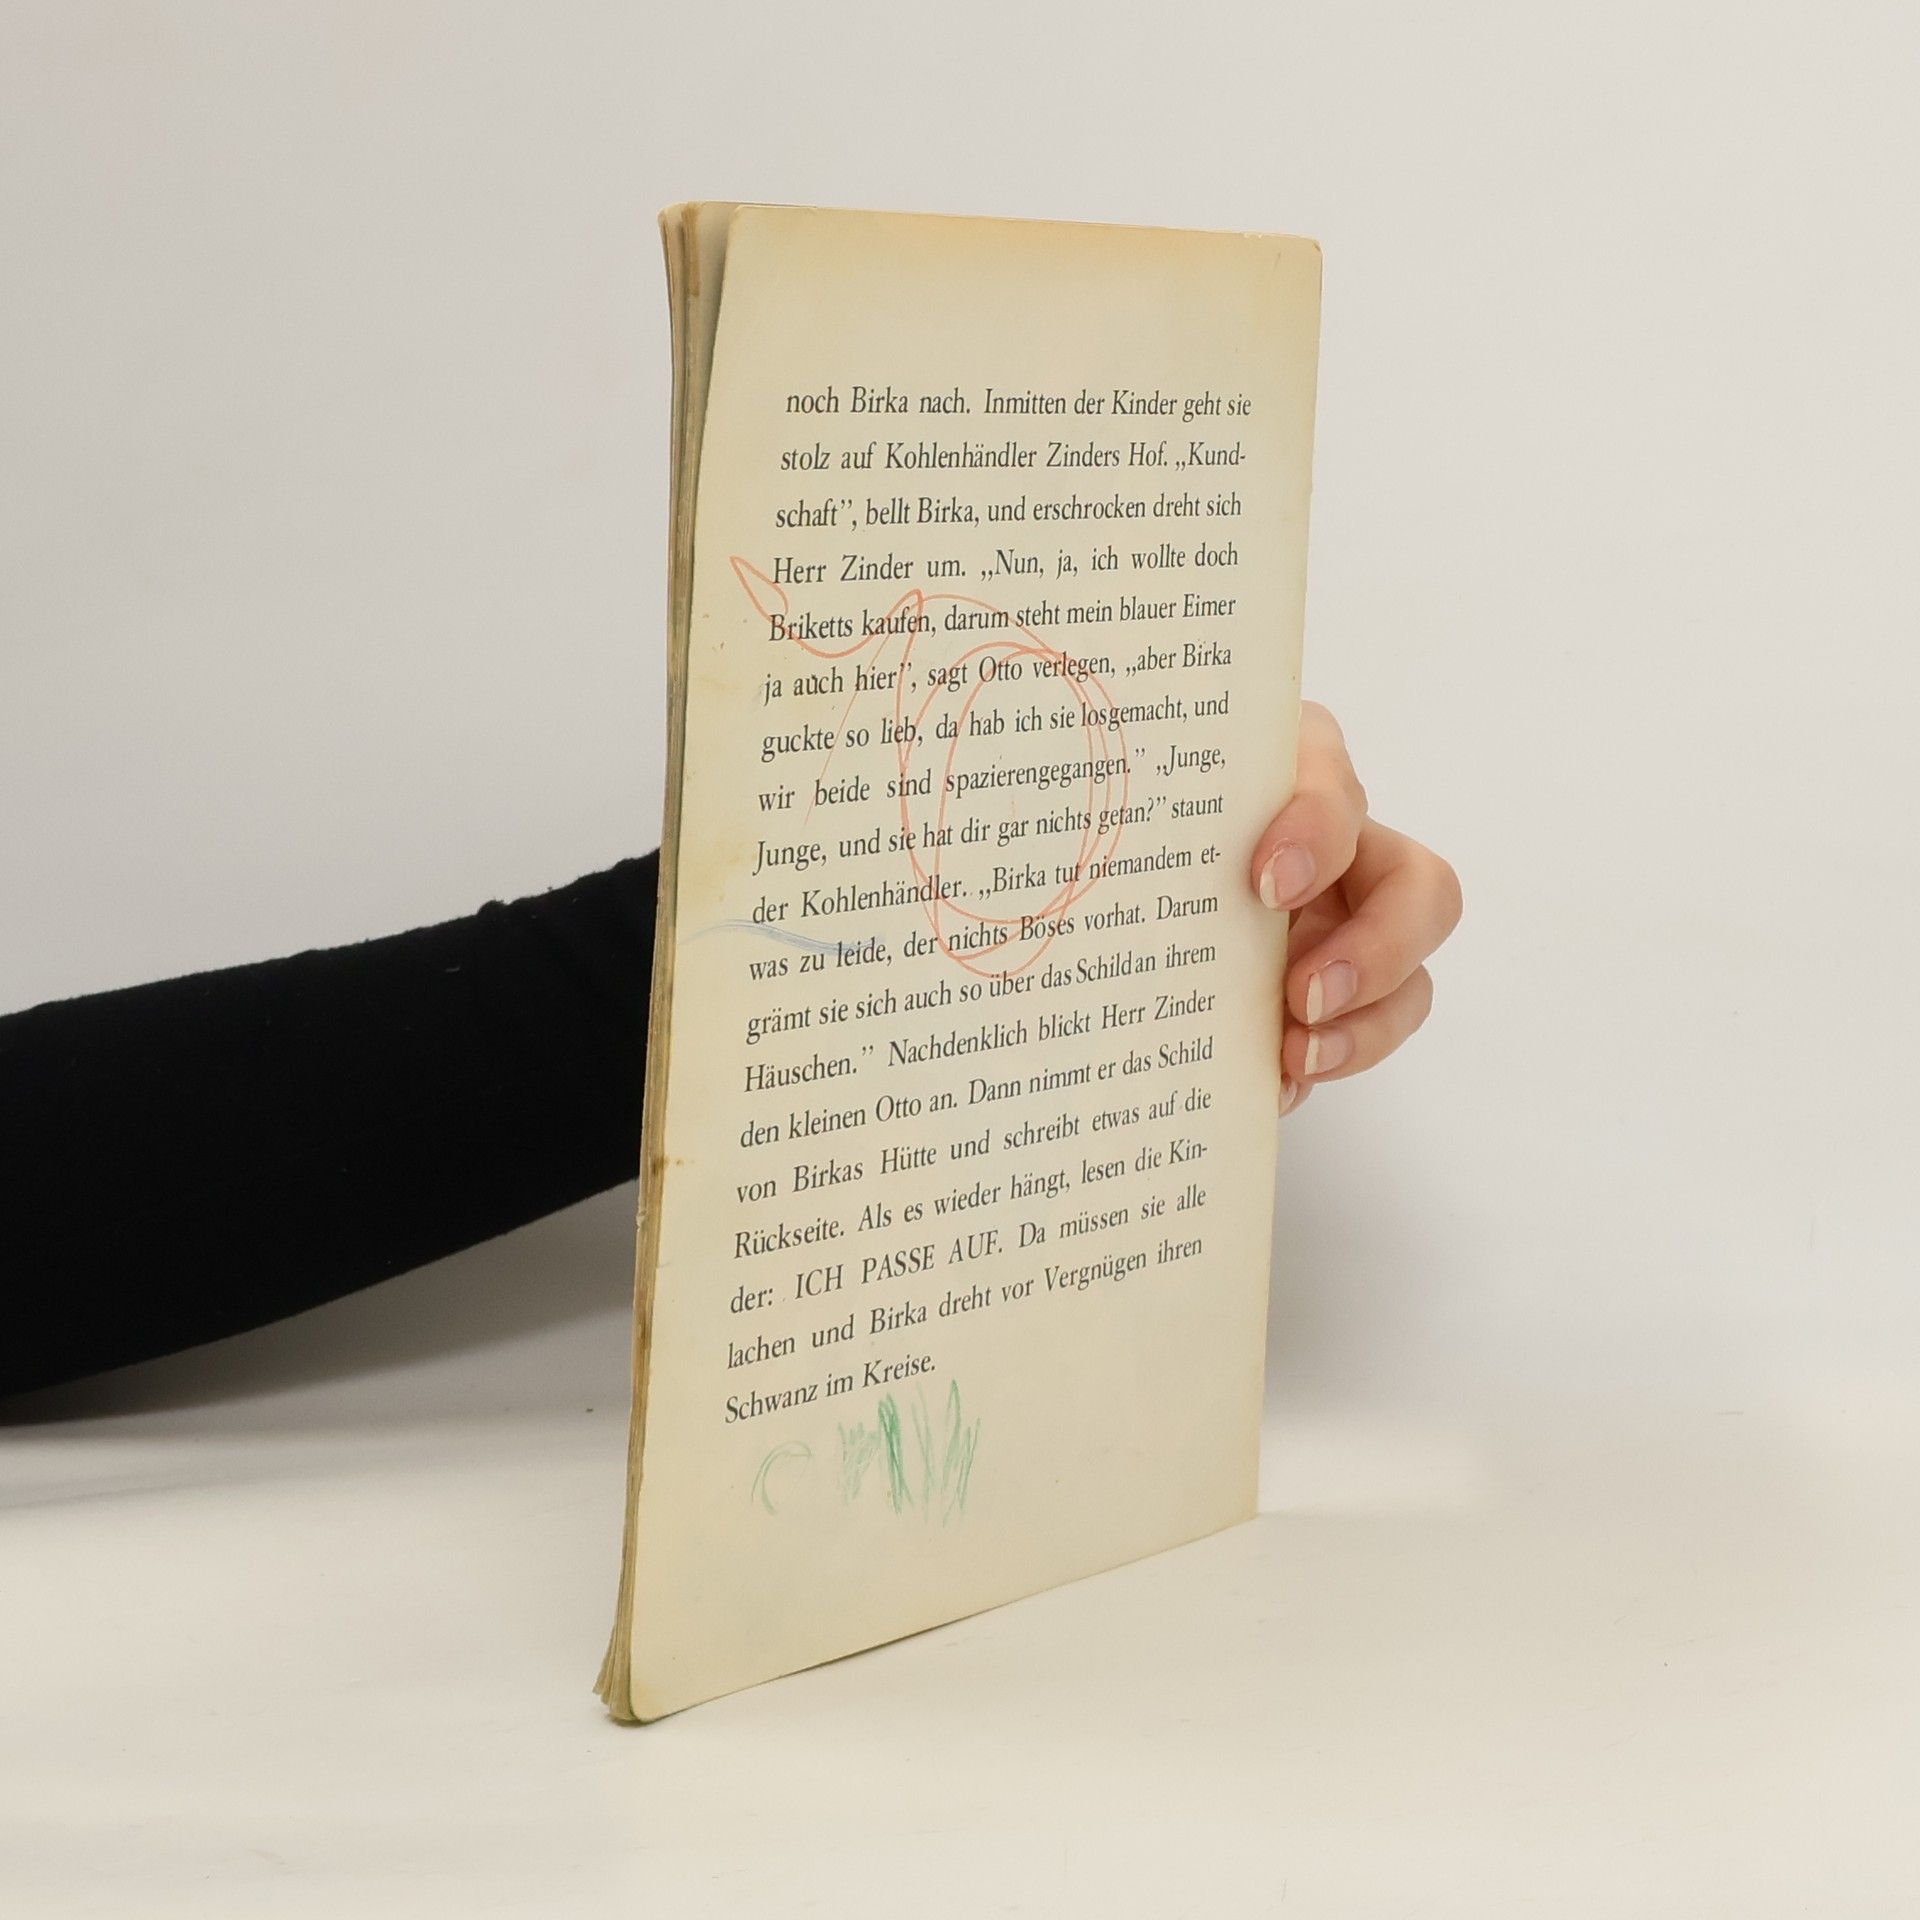 noch Birka nach. Inmitten der Kinder geht sie
stolz auf Kohlenhändler Zinders Hof. „Kund-
schaft”, bellt Birka, und erschrocken dreht sich
Herr Zinder um. „Nun, ja, ich wollte doch
Briketts kaufen, darum steht mein blauer Eimer
ja auch hier”, sagt Otto verlegen, „aber Birka
guckte so lieb, da hab ich sie losgemacht, und
wir beide sind spazierengegangen.” „Junge,
Junge, und sie hat dir gar nichts getan?” staunt
der Kohlenhändler. „Birka tut niemandem et-
was zu leide, der nichts Böses vorhat. Darum
grämt sie sich auch so über das Schild an ihrem
Häuschen.” Nachdenklich blickt Herr Zinder
den kleinen Otto an. Dann nimmt er das Schild
von Birkas Hütte und schreibt etwas auf die
Rückseite. Als es wieder hängt, lesen die Kin-
der: ICH PASSE AUF. Da müssen sie alle
lachen und Birka dreht vor Vergnügen ihren
Schwanz im Kreise.